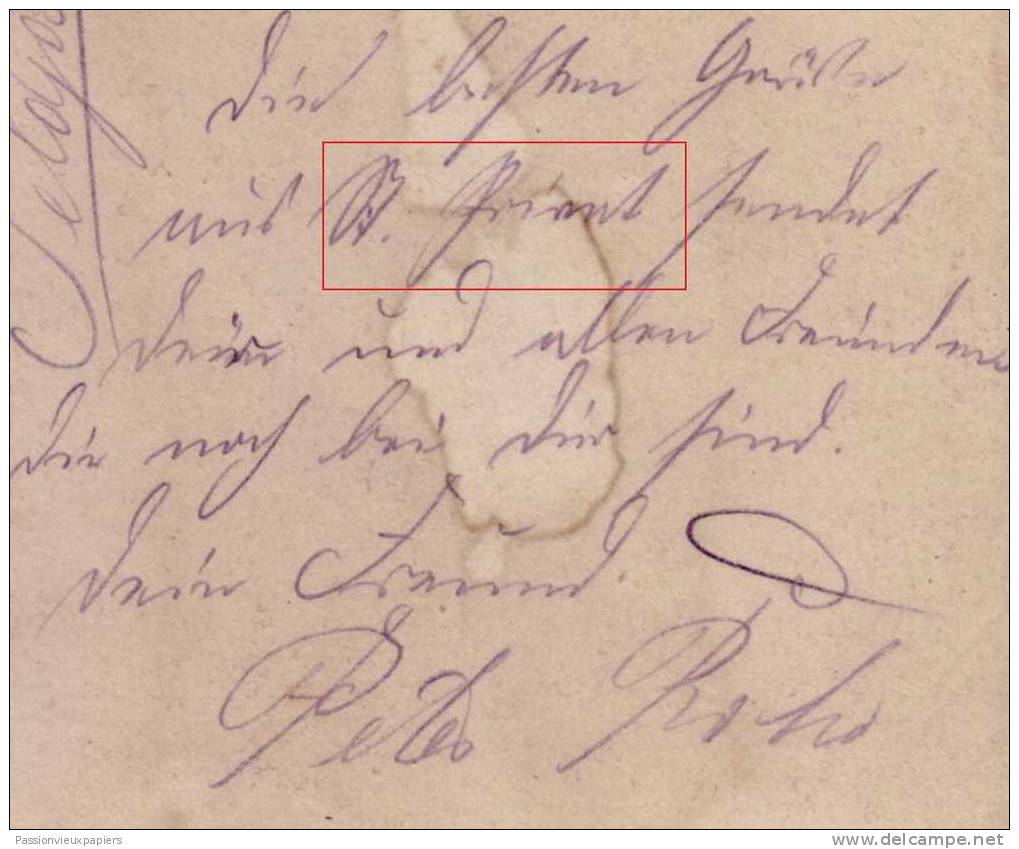 Die besten Grüße
aus St. Privat sendet
Deir und allen Freunden
die noch bei Dir sind.
Dein Freund.
Peter
Feldpos
Passionvieuxpapiers
www.delcampe.net